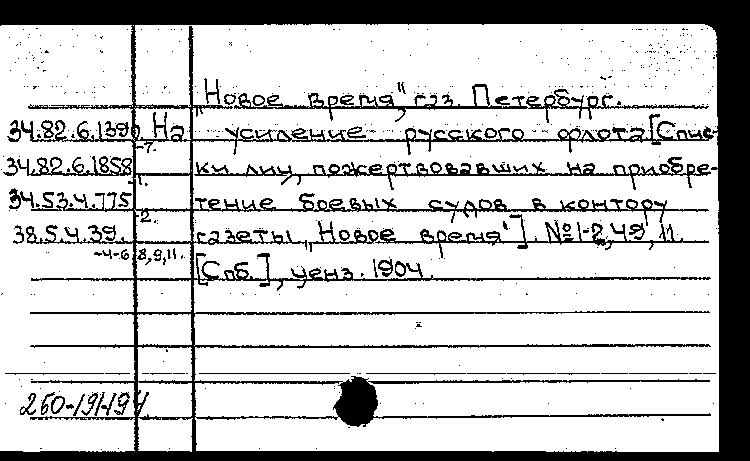 „Новое время", газ. Петербург.
34.82.6.1396 На усиление русского флота [Спис-
-7.
34.82.6.1858 ки лиц, пожертвовавших на приобре-
-1.
34.53.4.775 тение боевых судов в контору
-2.
38.5.4.39. газеты „Новое время"]. №1-2, 49, 11.
-4-6, 8, 9, 11.
[Спб.], ценз. 1904.
260-191-194